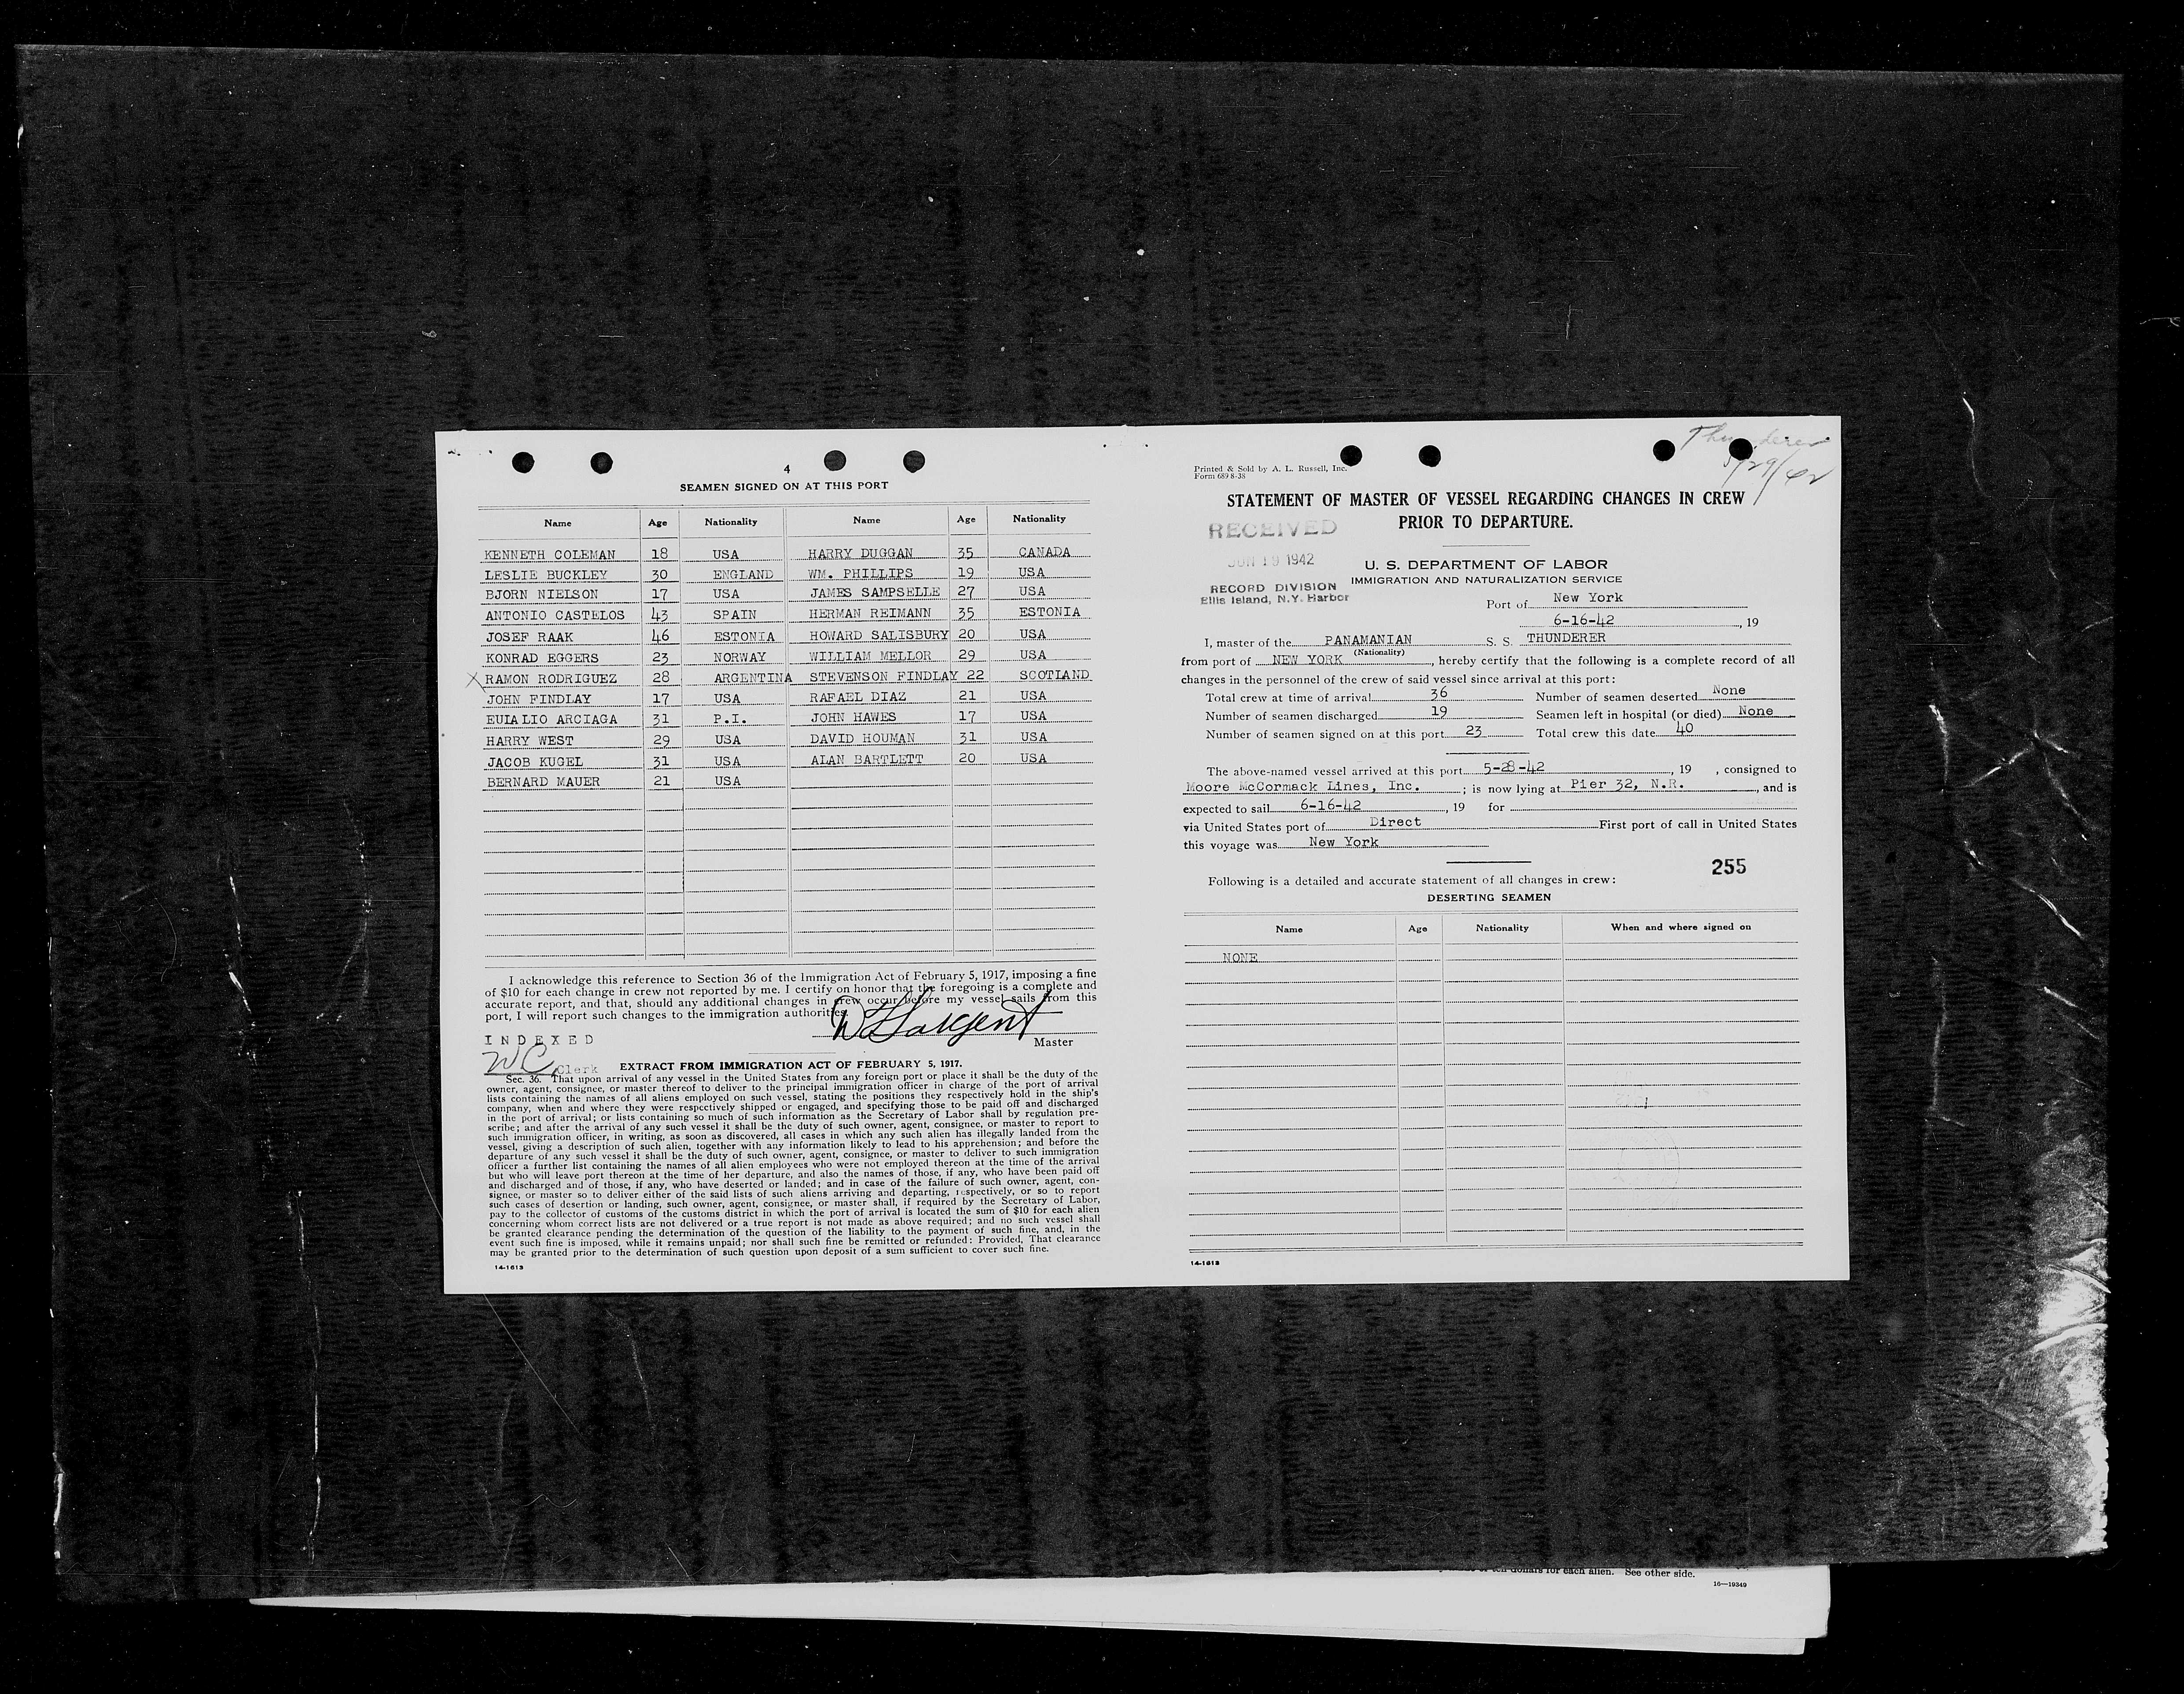 4
SEAMEN SIGNED ON AT THIS PORT
Name Age Nationality Name Age Nationality
KENNETH COLEMAN 18 USA HARRY DUGGAN 35 CANADA
LESLIE BUCKLEY 30 ENGLAND WM. PHILLIPS 19 USA
BJORN NIELSON 17 USA JAMES SAMPSELLE 27 USA
ANTONIO CASTELOS 43 SPAIN HERMAN REIMANN 35 ESTONIA
JOSEF RAAK 46 ESTONIA HOWARD SALISBURY 20 USA
KONRAD EGGERS 23 NORWAY WILLIAM MELLOR 29 USA
X RAMON RODRIGUEZ 28 ARGENTINA STEVENSON FINDLAY 22 SCOTLAND
JOHN FINDLAY 17 USA RAFAEL DIAZ 21 USA
EULALIO ARCIAGA 31 P.I. JOHN HAWES 17 USA
HARRY WEST 29 USA DAVID HOUMAN 31 USA
JACOB KUGEL 31 USA ALAN BARTLETT 20 USA
BERNARD MAUER 21 USA
I acknowledge this reference to Section 36 of the Immigration Act of February 5, 1917, imposing a fine
of $10 for each change in crew not reported by me. I certify on honor that the foregoing is a complete and
accurate report, and that, should any additional changes in crew occur before my vessel sails from this
port, I will report such changes to the immigration authorities.
Sargent
INDEXED
Master
WC Clerk
EXTRACT FROM IMMIGRATION ACT OF FEBRUARY 5, 1917.
Sec. 36. That upon arrival of any vessel in the United States from any foreign port or place it shall be the duty of the
owner, agent, consignee, or master thereof to deliver to the principal immigration officer in charge of the port of arrival
lists containing the names of all aliens employed on such vessel, stating the positions they respectively hold in the ship's
company, when and where they were respectively shipped or engaged, and specifying those to be paid off and discharged
in the port of arrival; or lists containing so much of such information as the Secretary of Labor shall by regulation pre-
scribe; and after the arrival of any such vessel it shall be the duty of such owner, agent, consignee, or master to report to
such immigration officer, in writing, as soon as discovered, all cases in which any such alien has illegally landed from the
vessel, giving a description of such alien, together with any information likely to lead to his apprehension; and before the
departure of any such vessel it shall be the duty of such owner, agent, consignee, or master to deliver to such immigration
officer a further list containing the names of all alien employees who were not employed thereon at the time of the arrival
but who will leave port thereon at the time of her departure, and also the names of those, if any, who have been paid off
and discharged and of those, if any, who have deserted or landed; and in case of the failure of such owner, agent, con-
signee, or master so to deliver either of the said lists of such aliens arriving and departing, respectively, or so to report
such cases of desertion or landing, such owner, agent, consignee, or master shall, if required by the Secretary of Labor,
pay to the collector of customs of the customs district in which the port of arrival is located the sum of $10 for each alien
concerning whom correct lists are not delivered or a true report is not made as above required; and no such vessel shall
be granted clearance pending the determination of the question of the liability to the payment of such fine, and, in the
event such fine is imposed, while it remains unpaid; nor shall such fine be remitted or refunded: Provided, That clearance
may be granted prior to the determination of such question upon deposit of a sum sufficient to cover such fine.
14-1613
Thunderer
5/29/42
Printed & Sold by A. L. Russell, Inc.
Form 689 8-38
STATEMENT OF MASTER OF VESSEL REGARDING CHANGES IN CREW
PRIOR TO DEPARTURE.
RECEIVED
JUN 19 1942
RECORD DIVISION
Ellis Island, N.Y. Harbor
U. S. DEPARTMENT OF LABOR
IMMIGRATION AND NATURALIZATION SERVICE
Port of New York
6-16-42, 19
I, master of the PANAMANIAN S. S. THUNDERER
(Nationality)
from port of NEW YORK, hereby certify that the following is a complete record of all
changes in the personnel of the crew of said vessel since arrival at this port:
Total crew at time of arrival 36 Number of seamen deserted None
Number of seamen discharged 19 Seamen left in hospital (or died) None
Number of seamen signed on at this port 23 Total crew this date 40
The above-named vessel arrived at this port 5-28-42, 19 , consigned to
Moore McCormack Lines, Inc. ; is now lying at Pier 32, N.R. , and is
expected to sail 6-16-42, 19 for
via United States port of Direct First port of call in United States
this voyage was New York
255
Following is a detailed and accurate statement of all changes in crew:
DESERTING SEAMEN
Name Age Nationality When and where signed on
NONE
14-1613
dollars for each alien. See other side.
16—19349